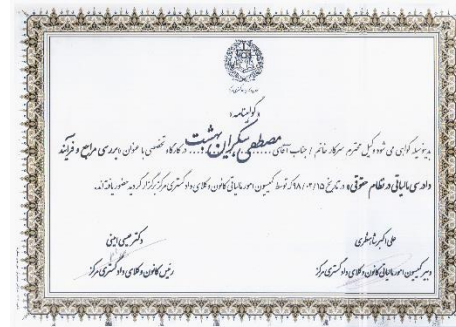 «گواهینامه»
بدینوسیله گواهی می شود وکیل محترم سرکار خانم / جناب آقای مصطفی بیکران بهشت در کارگاه تخصصی با عنوان «بررسی مراجع و فرآیند
دادرسی مالیاتی در نظام حقوقی» در تاریخ ۹۸/۰۲/۱۵ که توسط کمیسیون امور مالیاتی کانون وکلای دادگستری مرکز برگزار گردید حضور یافته‌اند.
علی اکبر
دکتر عیسی امینی
دبیر کمیسیون امور مالیاتی کانون وکلای دادگستری مرکز
رئیس کانون وکلای دادگستری مرکز